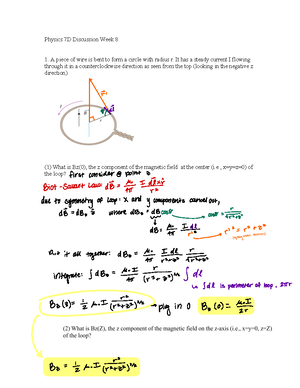 Physics 7D Discussion Week 8
1. A piece of wire is bent to form a circle with radius r. It has a steady current I flowing
through it in a counterclockwise direction as seen from the top (looking in the negative z
direction).
(1) What is Bz(0), the z component of the magnetic field at the center (i.e., x=y=z=0) of
the loop? first consider @ point z
Biot-Savart Law: dB = μ₀/4π I dl×r̂/r²
due to symmetry of loop, x and y components cancel out,
dB = dB₂ ẑ where dB₂ = dB cosθ
cosθ = r/√r²+z²
dB = μ₀/4π I dl/r'²
r'² = r² + z²
Put it all together: dB₂ = μ₀/4π I dl/r²+z² r/√r²+z²
integrate: ∫dB₂ = μ₀/4π I r/(r²+z²)^3/2 ∫dl
↳ ∫dl is perimeter of loop, 2πr
B₂(z) = 1/2 μ₀ I r²/(r²+z²)^3/2 → plug in 0 B₂(0) = μ₀I/2r
(2) What is Bz(Z), the z component of the magnetic field on the z-axis (i.e., x=y=0, z=Z)
of the loop?
B₂ = 1/2 μ₀ I r²/(r²+z²)^3/2